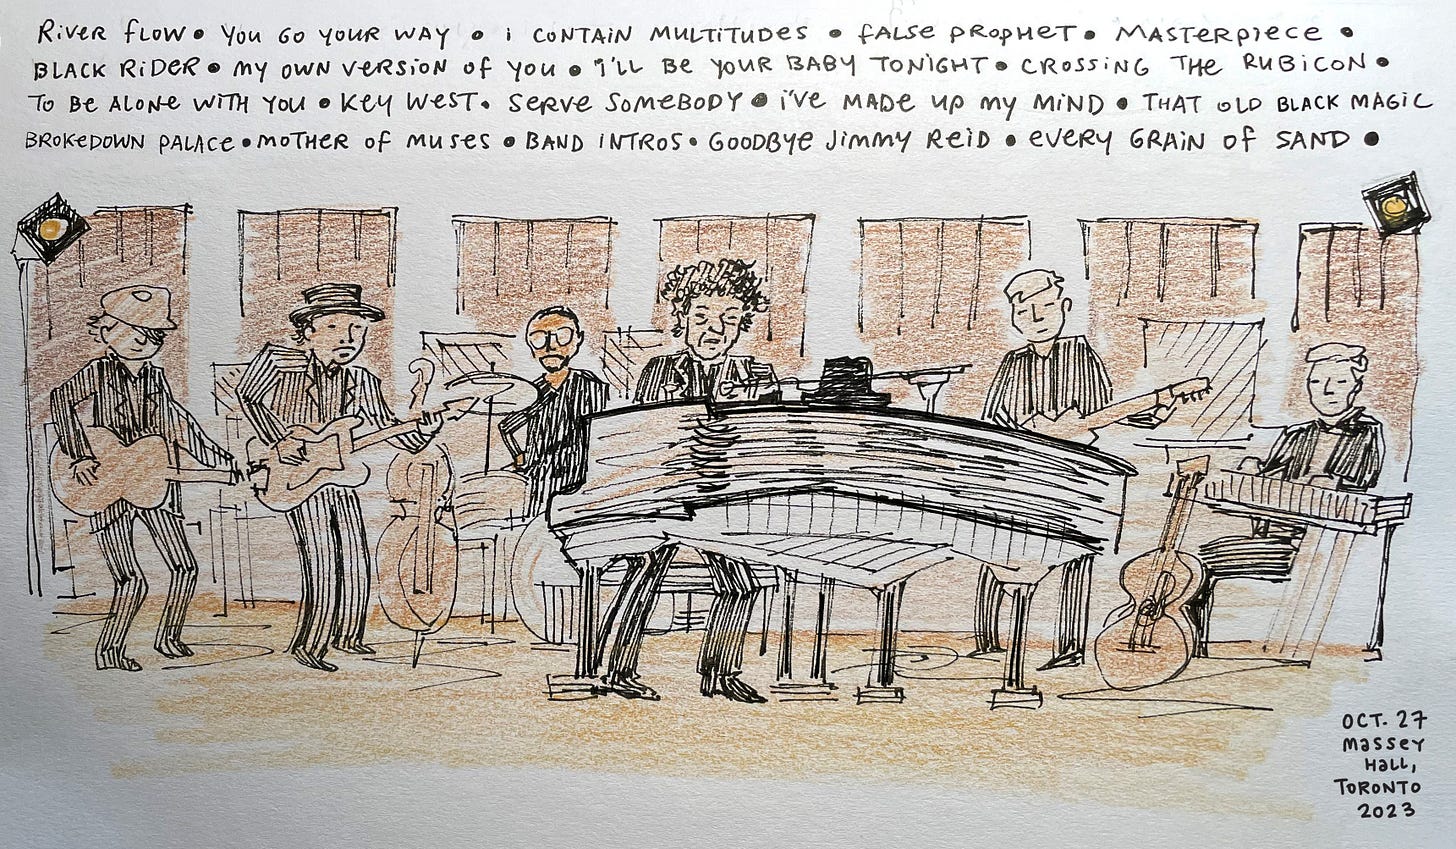 RiVER fLOW • YOU GO YOUR WAY • i CONTAIN MULTITUDES • fALSE PROPHET • MASTERPIECE •
BLACK RiDER • MY OWN VERSION Of YOU • i'LL BE YOUR BABY TONIGHT • CROSSiNG THE RUBiCON •
TO BE ALONE WiTH YOU • KEY WEST • SERVE SOMEBODY • i'VE MADE UP MY MiND • THAT OLD BLACK MAGiC
BROKEDOWN PALACE • MOTHER Of MUSES • BAND INTROS • GOODBYE JiMMY REiD • EVERY GRAIN Of SAND •
OCT. 27
MASSEY
HALL,
TORONTO
2023